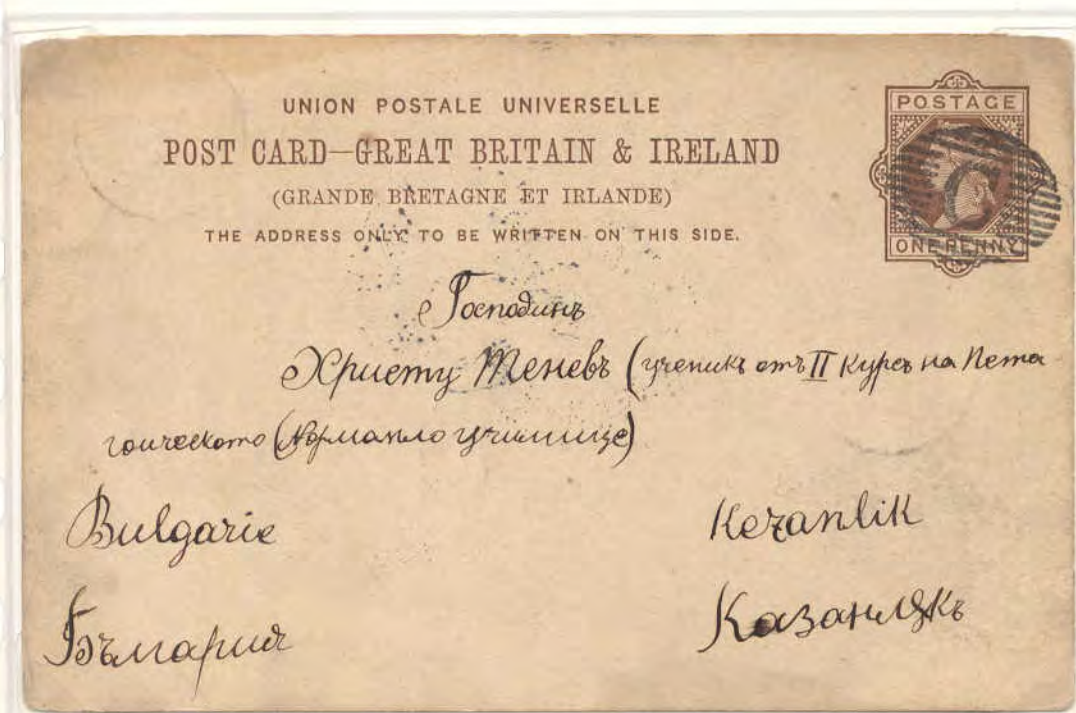 UNION POSTALE UNIVERSELLE
POST CARD—GREAT BRITAIN & IRELAND
(GRANDE BRETAGNE ET IRLANDE)
THE ADDRESS ONLY TO BE WRITTEN ON THIS SIDE.
POSTAGE
C
ONE PENNY
Господинъ
Христу Теневъ (ученикъ отъ II курсъ на Педа
гогическото (Нормално училище)
Bulgarie
Kezanlik
България
Казанлѫкъ